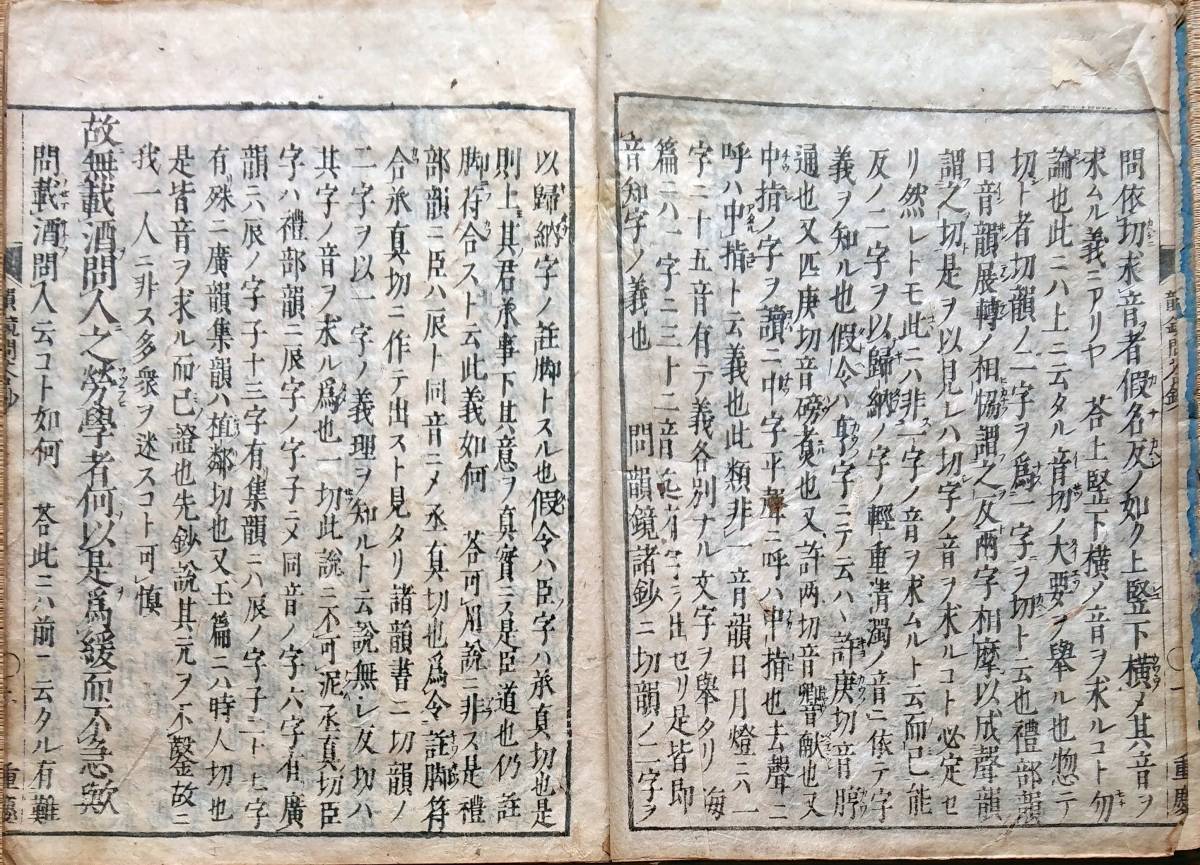 問依切求音者假名反ノ如ク上竪下横〆其音ヲ
求ムル義ニアリヤ 荅上竪下横ノ音ヲ求ルコト勿
論也此ニハ上ニ云タル音切ノ大要ヲ舉ル也惣ニテ
切ト者切韻ノ二字ヲ爲一字ヲ切ト云也禮部韻
曰音韻展轉ノ相恊謂之反兩字相摩以成聲韻
謂之切是ヲ以見レハ切字ノ音ヲ求ルコト必定セ
リ然レトモ此ニハ非一字ノ音ヲ求ムルト云而已能
反ノ二字ヲ以歸納ノ字ノ輕重清濁ノ音ニ依テ字
義ヲ知ル也假令ハ亨字ニテ云ハヽ許庚切音脝
通也又匹庚切音磅煑也又許两切音響献也又
中指ノ字ヲ讀ニ中字平聲ニ呼ハ中指也去聲ニ
呼ハ中指ト云義也此類非一音韻日月燈ニハ一
字ニ十五音有テ義各別ナル文字ヲ舉タリ海
篇ニハ一字ニ三十二音ヲ出セリ是皆即
音知字ノ義也 問韻鏡諸鈔ニ切韻ノ二字ヲ
韻鏡問答鈔 一 重慶
以歸納字ノ註脚トスル也假令ハ臣字ハ承真切也是
則上其君承事下其意ヲ真實ニス是臣道也仍註
脚符合スト云此義如何 荅可用說ニ非ス是禮
部韻ニ臣ハ辰ト同音ニ〆丞真切也爲令註脚符
合承真切ニ作テ出スト見タリ諸韻書ニ切韻ノ
二字ヲ以一字ノ義理ヲ知ルト云說無レ反切ハ
其字ノ音ヲ求ル爲也一切此說ニ不可泥丞真切臣
字ハ禮部韻ニ辰ノ字子ニ〆同音ノ字六字有廣
韻ニハ辰ノ字子十三字有集韻ニハ辰ノ字子二十七字
有リ殊ニ廣韻集韻ハ植鄰切也又玉篇ニハ時人切也
是皆音ヲ求ル而已證也先鈔說其元ヲ不鑿故ニ
我一人ニ非ス多衆ヲ迷スコト可慎
故無載酒問人之勞學者何以是爲緩而不急歟
問載酒問人云コト如何 荅此ニハ前ニ云タル有難
韻鏡問答鈔 重慶